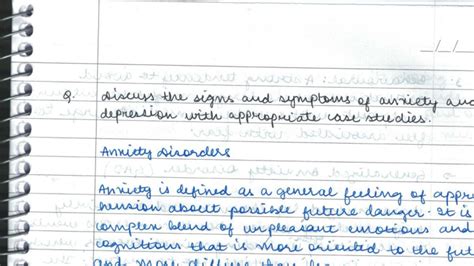 Q. Discuss the signs and symptoms of anxiety and
depression with appropriate case studies.
Anxiety Disorders
Anxiety is defined as a general feeling of appre
hension about possible future danger. It is
complex blend of unpleasant emotions and
cognitions that is more oriented to the fu
and more diffuse than